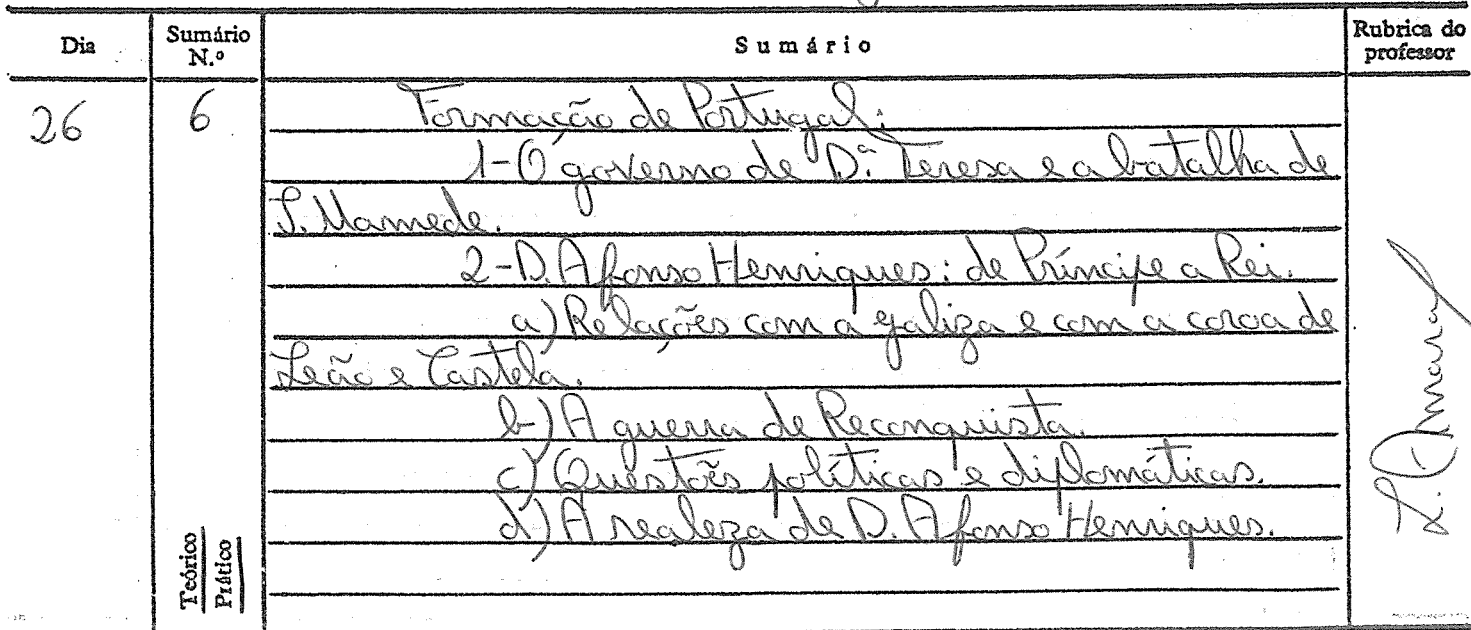 Dia
Sumário N.º
Sumário
Rubrica do professor
26
6
Formação de Portugal:
1-O governo de D.ª Teresa e a batalha de
S. Mamede.
2-D. Afonso Henriques: de Príncipe a Rei.
a) Relações com a galiza e com a coroa de
Leão e Castela.
b) A guerra de Reconquista.
c) Questões políticas e diplomáticas.
d) A realeza de D. Afonso Henriques.
Teórico
Prático
L. Amaral